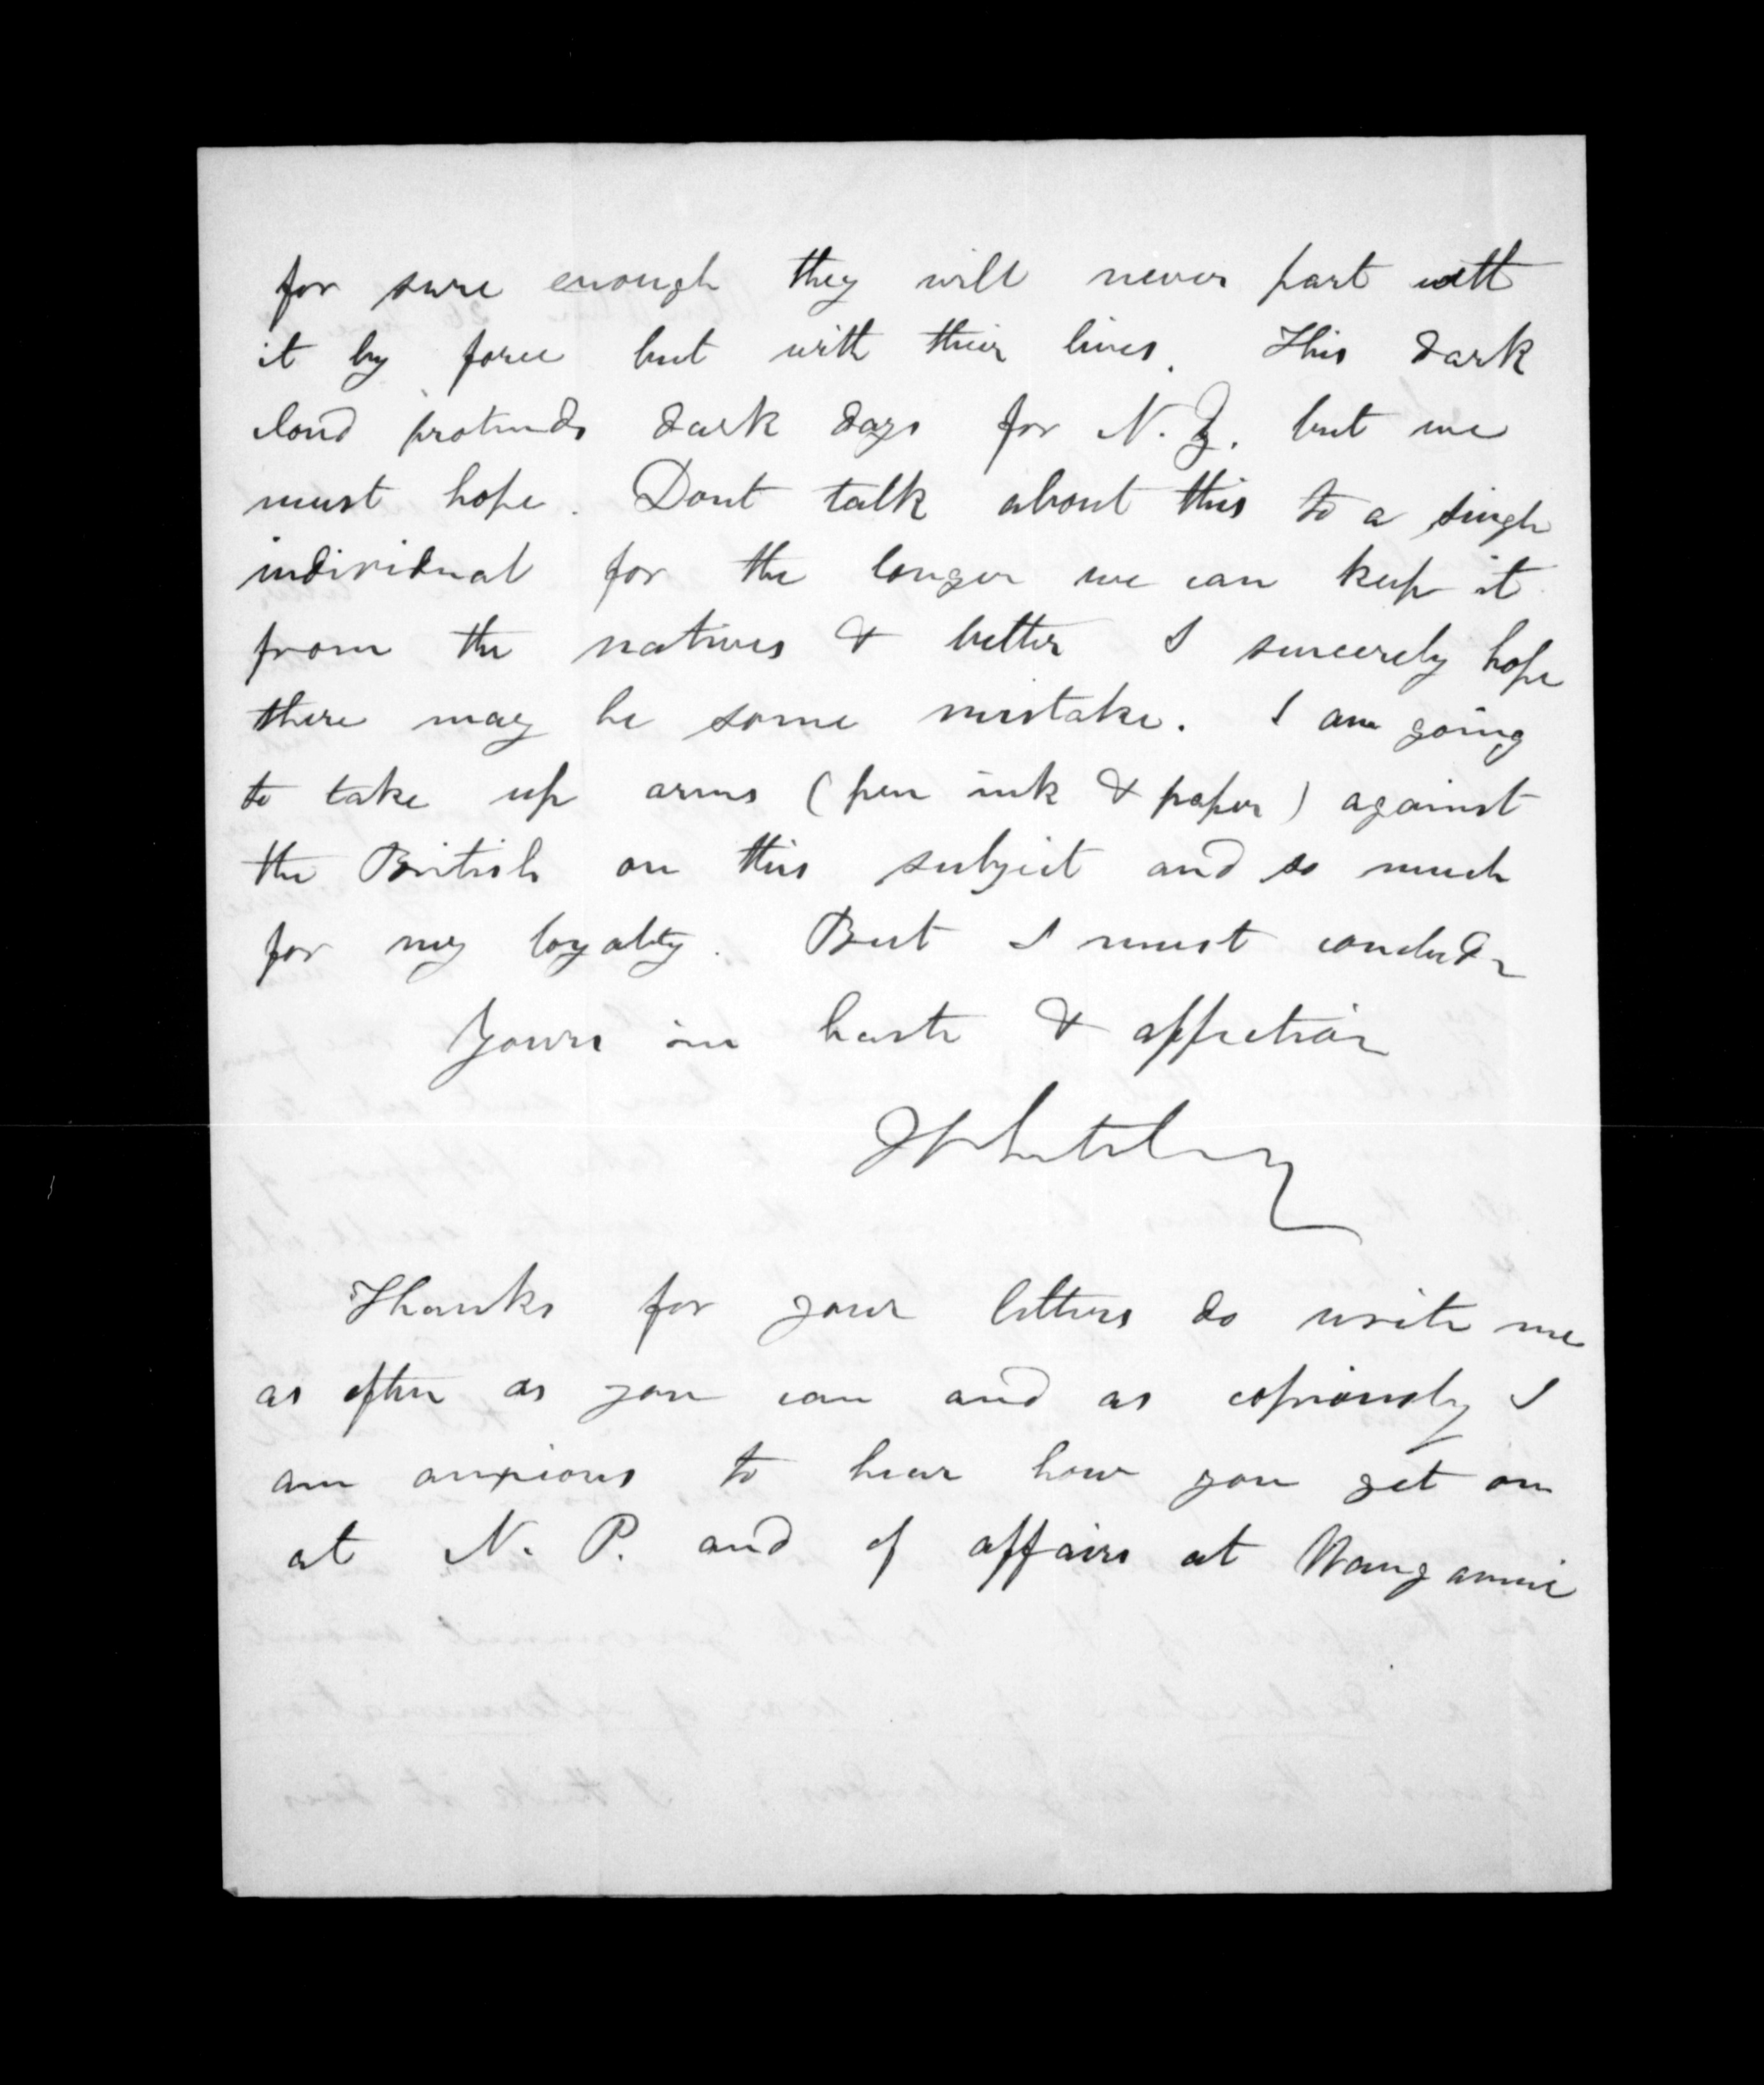 for sure enough they will never part with
it by force but with their lives. This dark
cloud protends dark days for N. Z. but we
must hope. Dont talk about this to a single
individual for the longer we can keep it
from the natives & better I sincerely hope
there may be some mistake. I am going
to take up arms (pen ink & paper) against
the British on this subject and so much
for my loyalty. But I must conclude
Yours in haste & affection
J Whiteley
Thanks for your letters do write me
as often as you can and as copiously I
am anxious to hear how you get on
at N. P. and of affairs at Wanganui